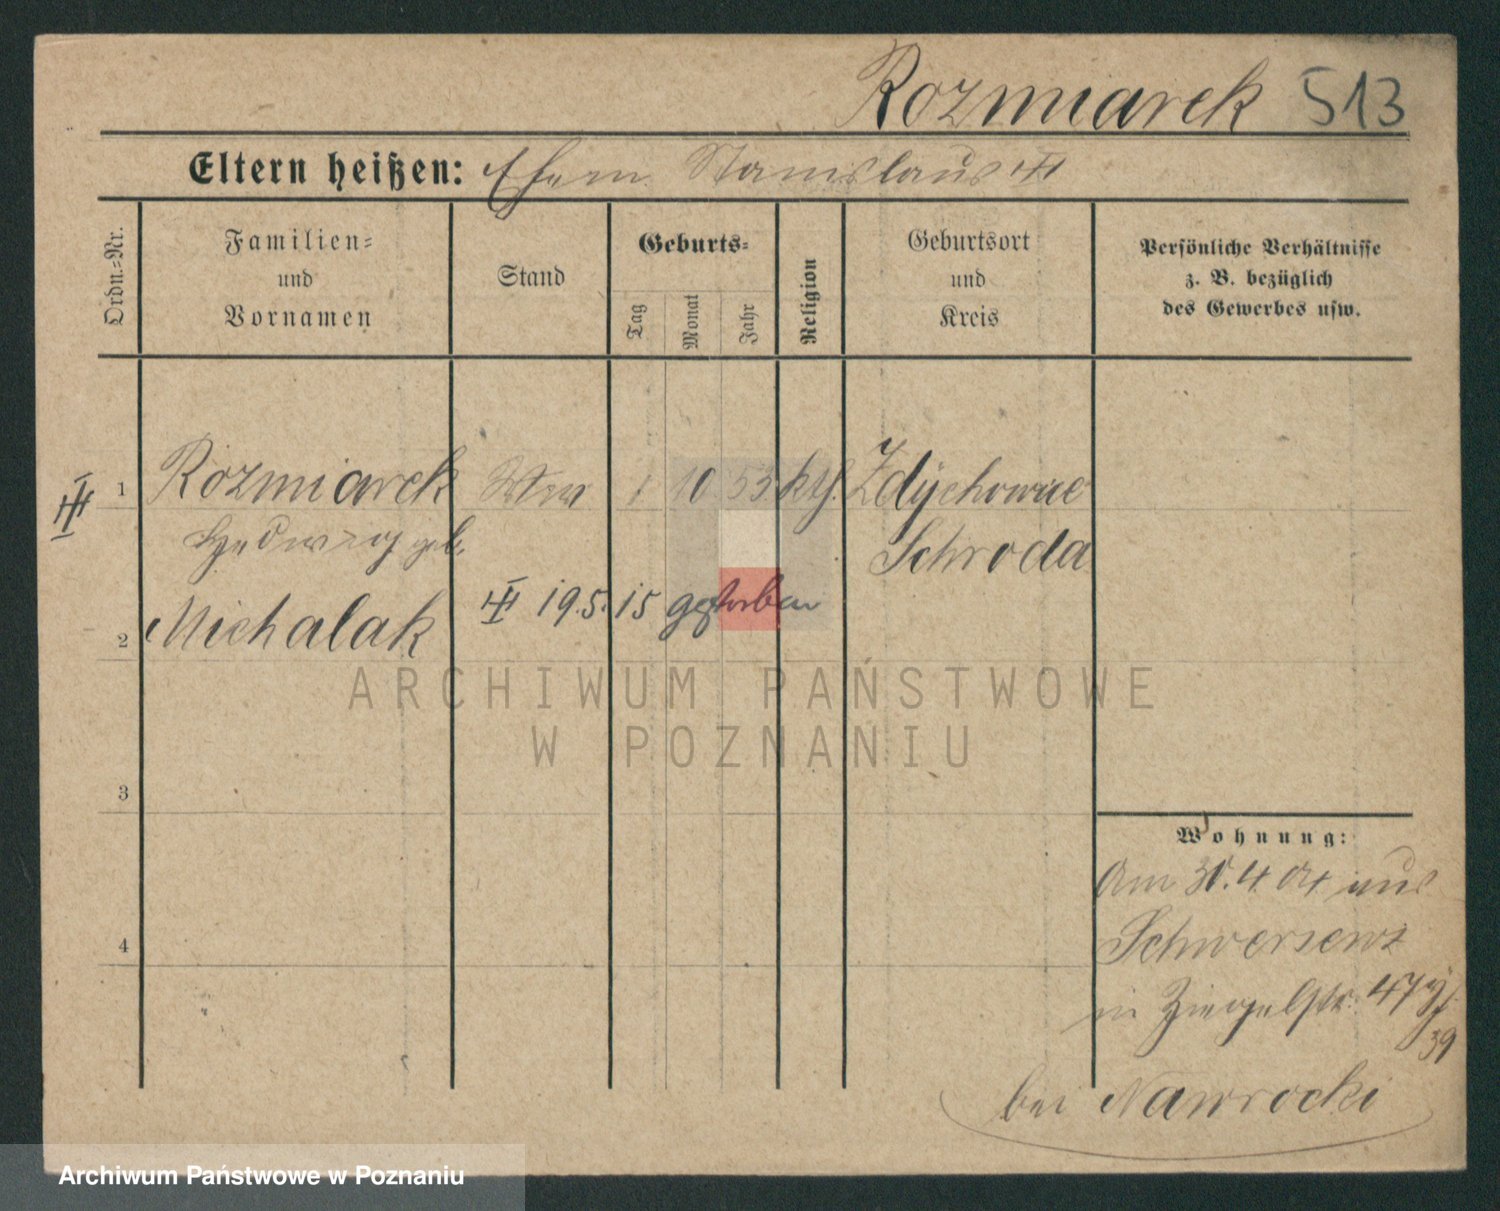 Rozmiarek 513
Eltern heißen: Ehem. Stanislaus
Ordn.-Nr.
Familien-
und
Vornamen
Stand
Geburts-
Tag
Monat
Jahr
Religion
Geburtsort
und
Kreis
Persönliche Verhältnisse
z. B. bezüglich
des Gewerbes usw.
1 Rozmiarek Wwe 1 10 53 kth. Zdychowice
Hedwig geb. Schroda
2 Michalak 19.5.15 gestorben
3
4
Wohnung:
Am 30.4 04 aus
Schwersenz
in Ziegelstr. 47
39
bei Nawrocki
ARCHIWUM PAŃSTWOWE
W POZNANIU
Archiwum Państwowe w Poznaniu